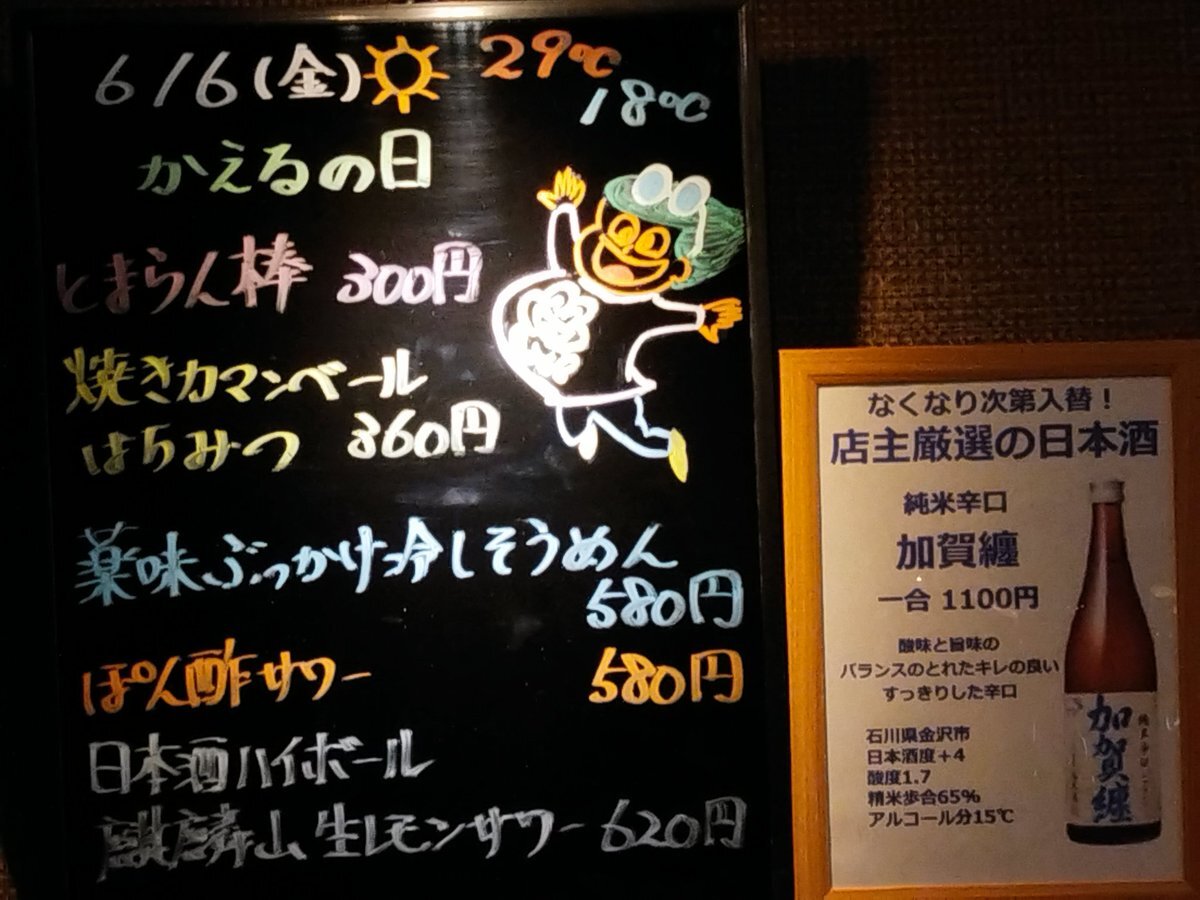 6/6(金) 29℃
18℃
かえるの日
とまらん棒 300円
焼きカマンベール
はちみつ 360円
薬味ぶっかけ冷しそうめん
580円
ぽん酢サワー 580円
日本酒ハイボール
麒麟山 生レモンサワー 620円
なくなり次第入替!
店主厳選の日本酒
純米辛口
加賀纏
一合 1100円
酸味と旨味の
バランスのとれたキレの良い
すっきりした辛口
石川県金沢市
日本酒度+4
酸度1.7
精米歩合65%
アルコール分15℃
加賀纏